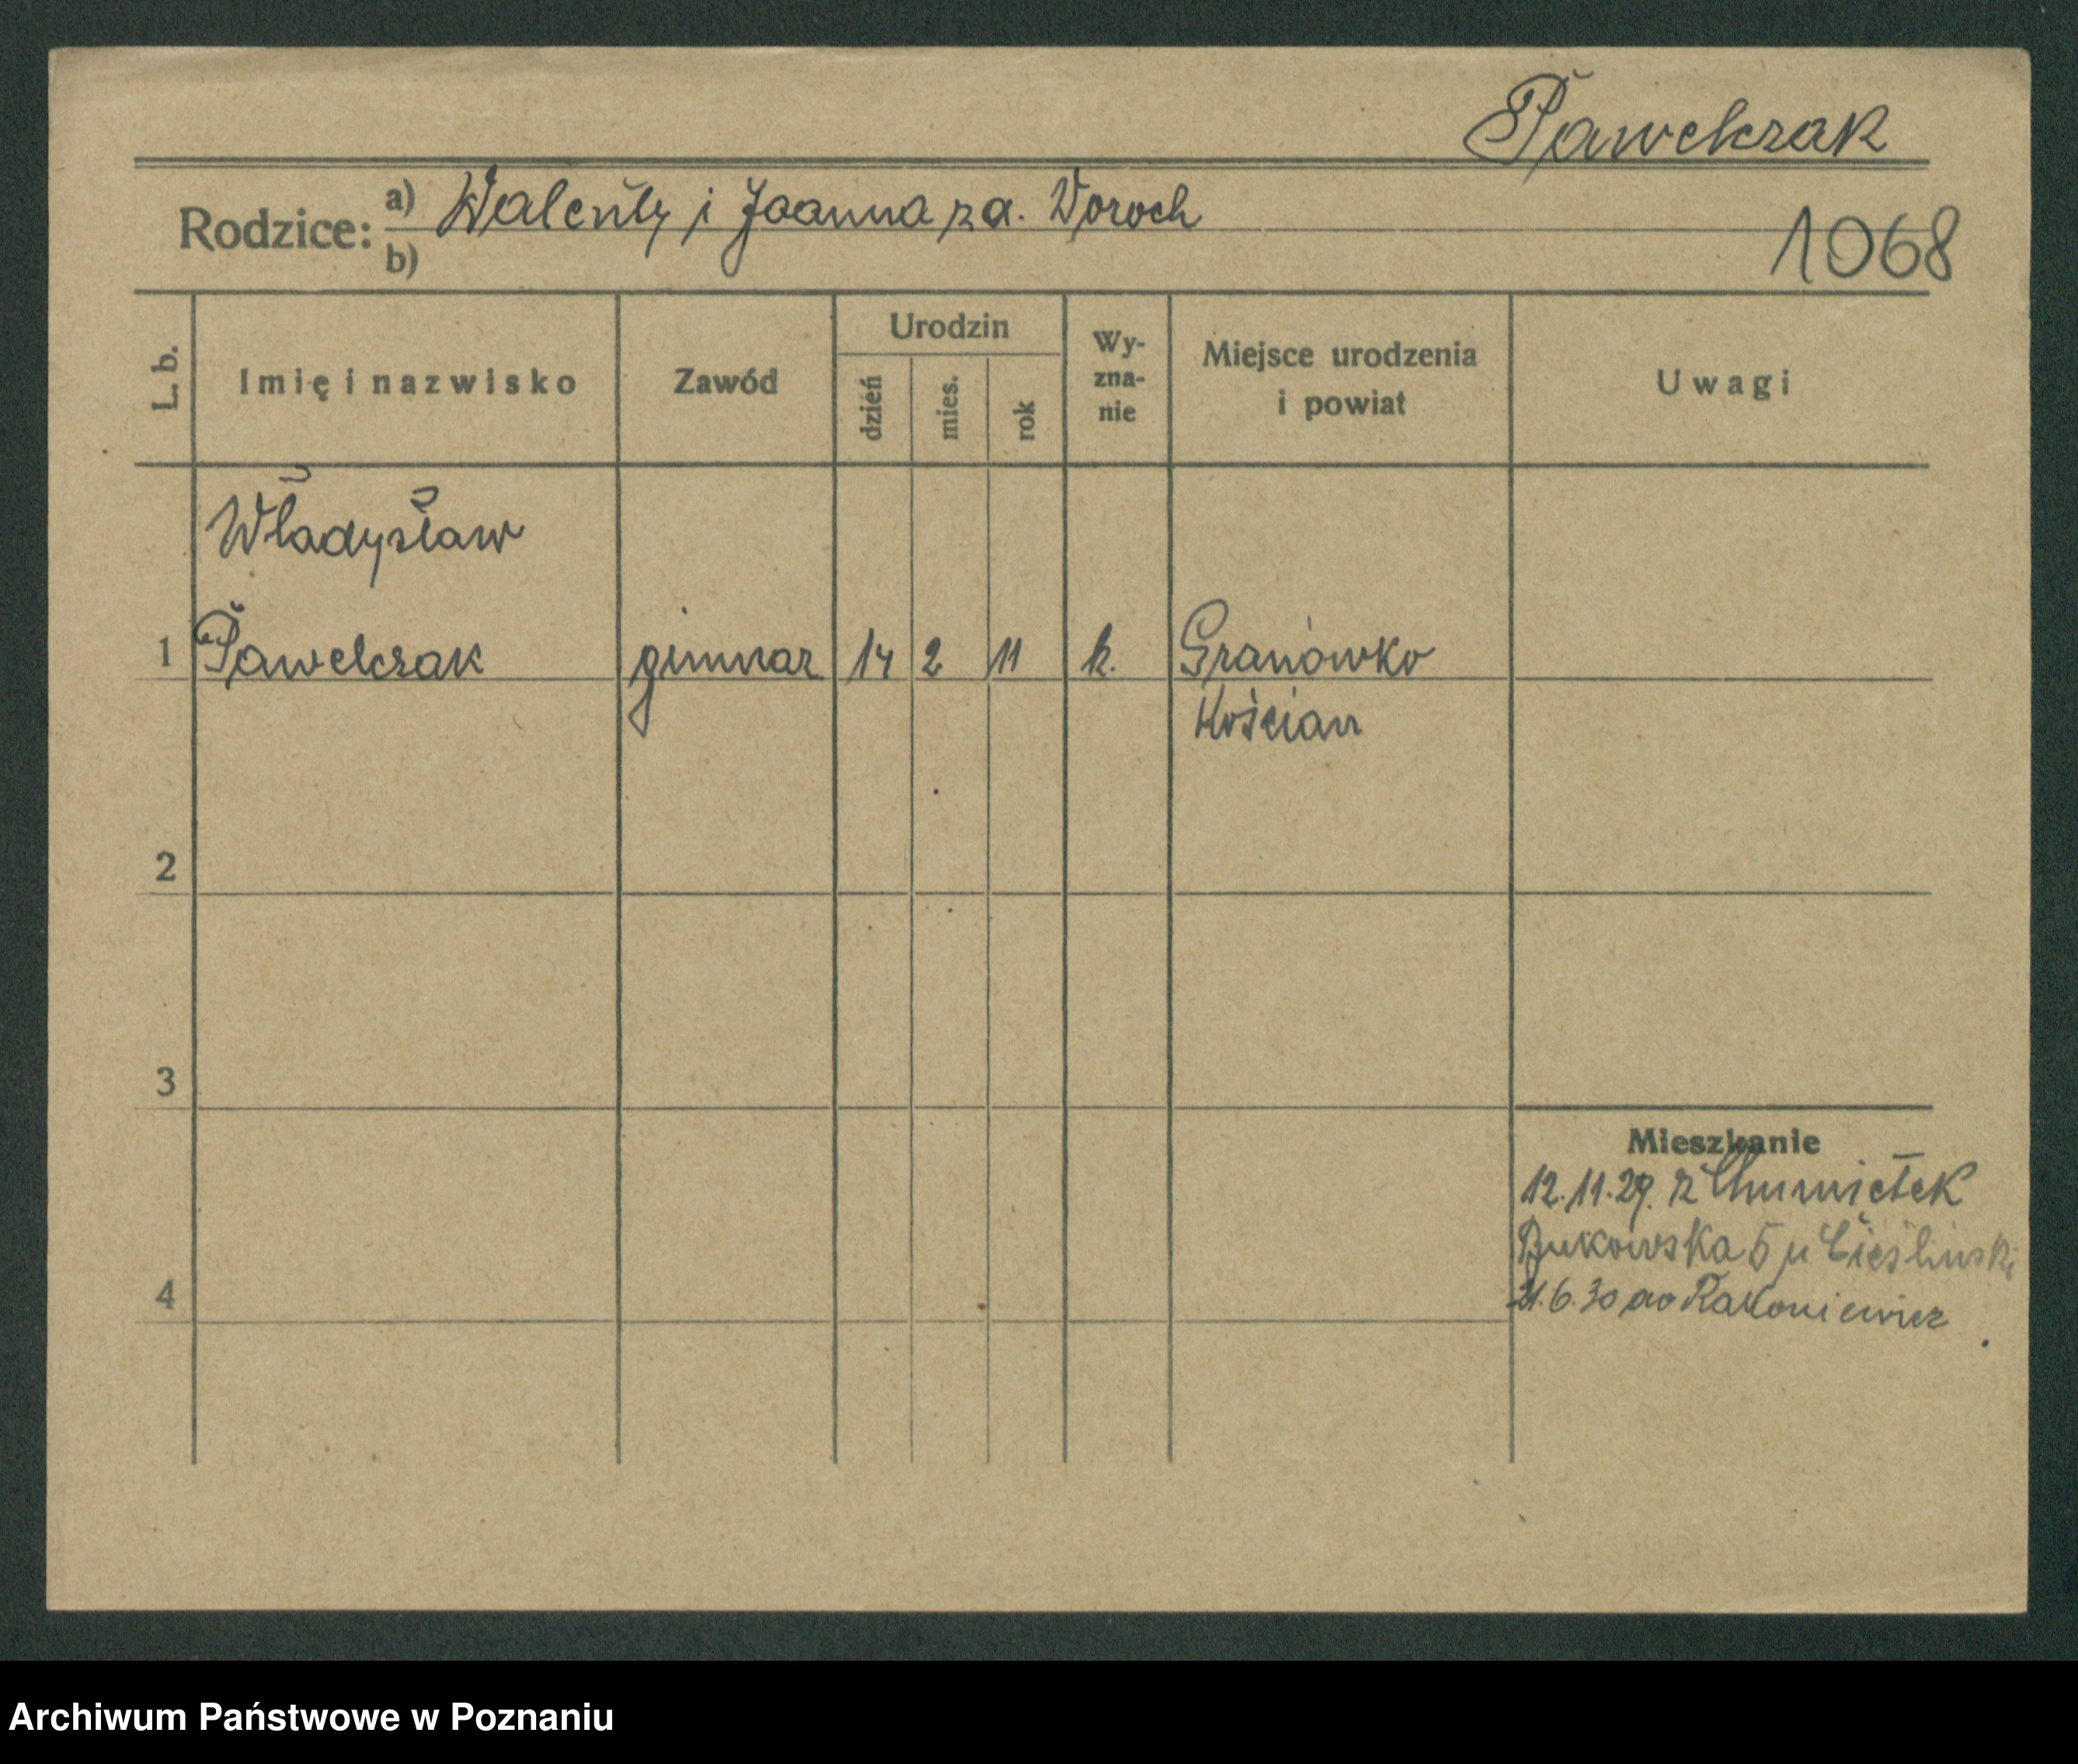 Pawelczak
Rodzice: a) Walenty i Joanna za. Woroch
b)
1068
L. b.
Imię i nazwisko
Zawód
Urodzin
dzień
mies.
rok
Wy-
zna-
nie
Miejsce urodzenia
i powiat
Uwagi
Władysław
1 Pawelczak gimnaz 14 2 11 k. Granówko
Kościan
2
3
Mieszkanie
12.11.29. z
Bukowska 5 u Cieśliński
4
21.6.30 do Rakoniewicz
Archiwum Państwowe w Poznaniu